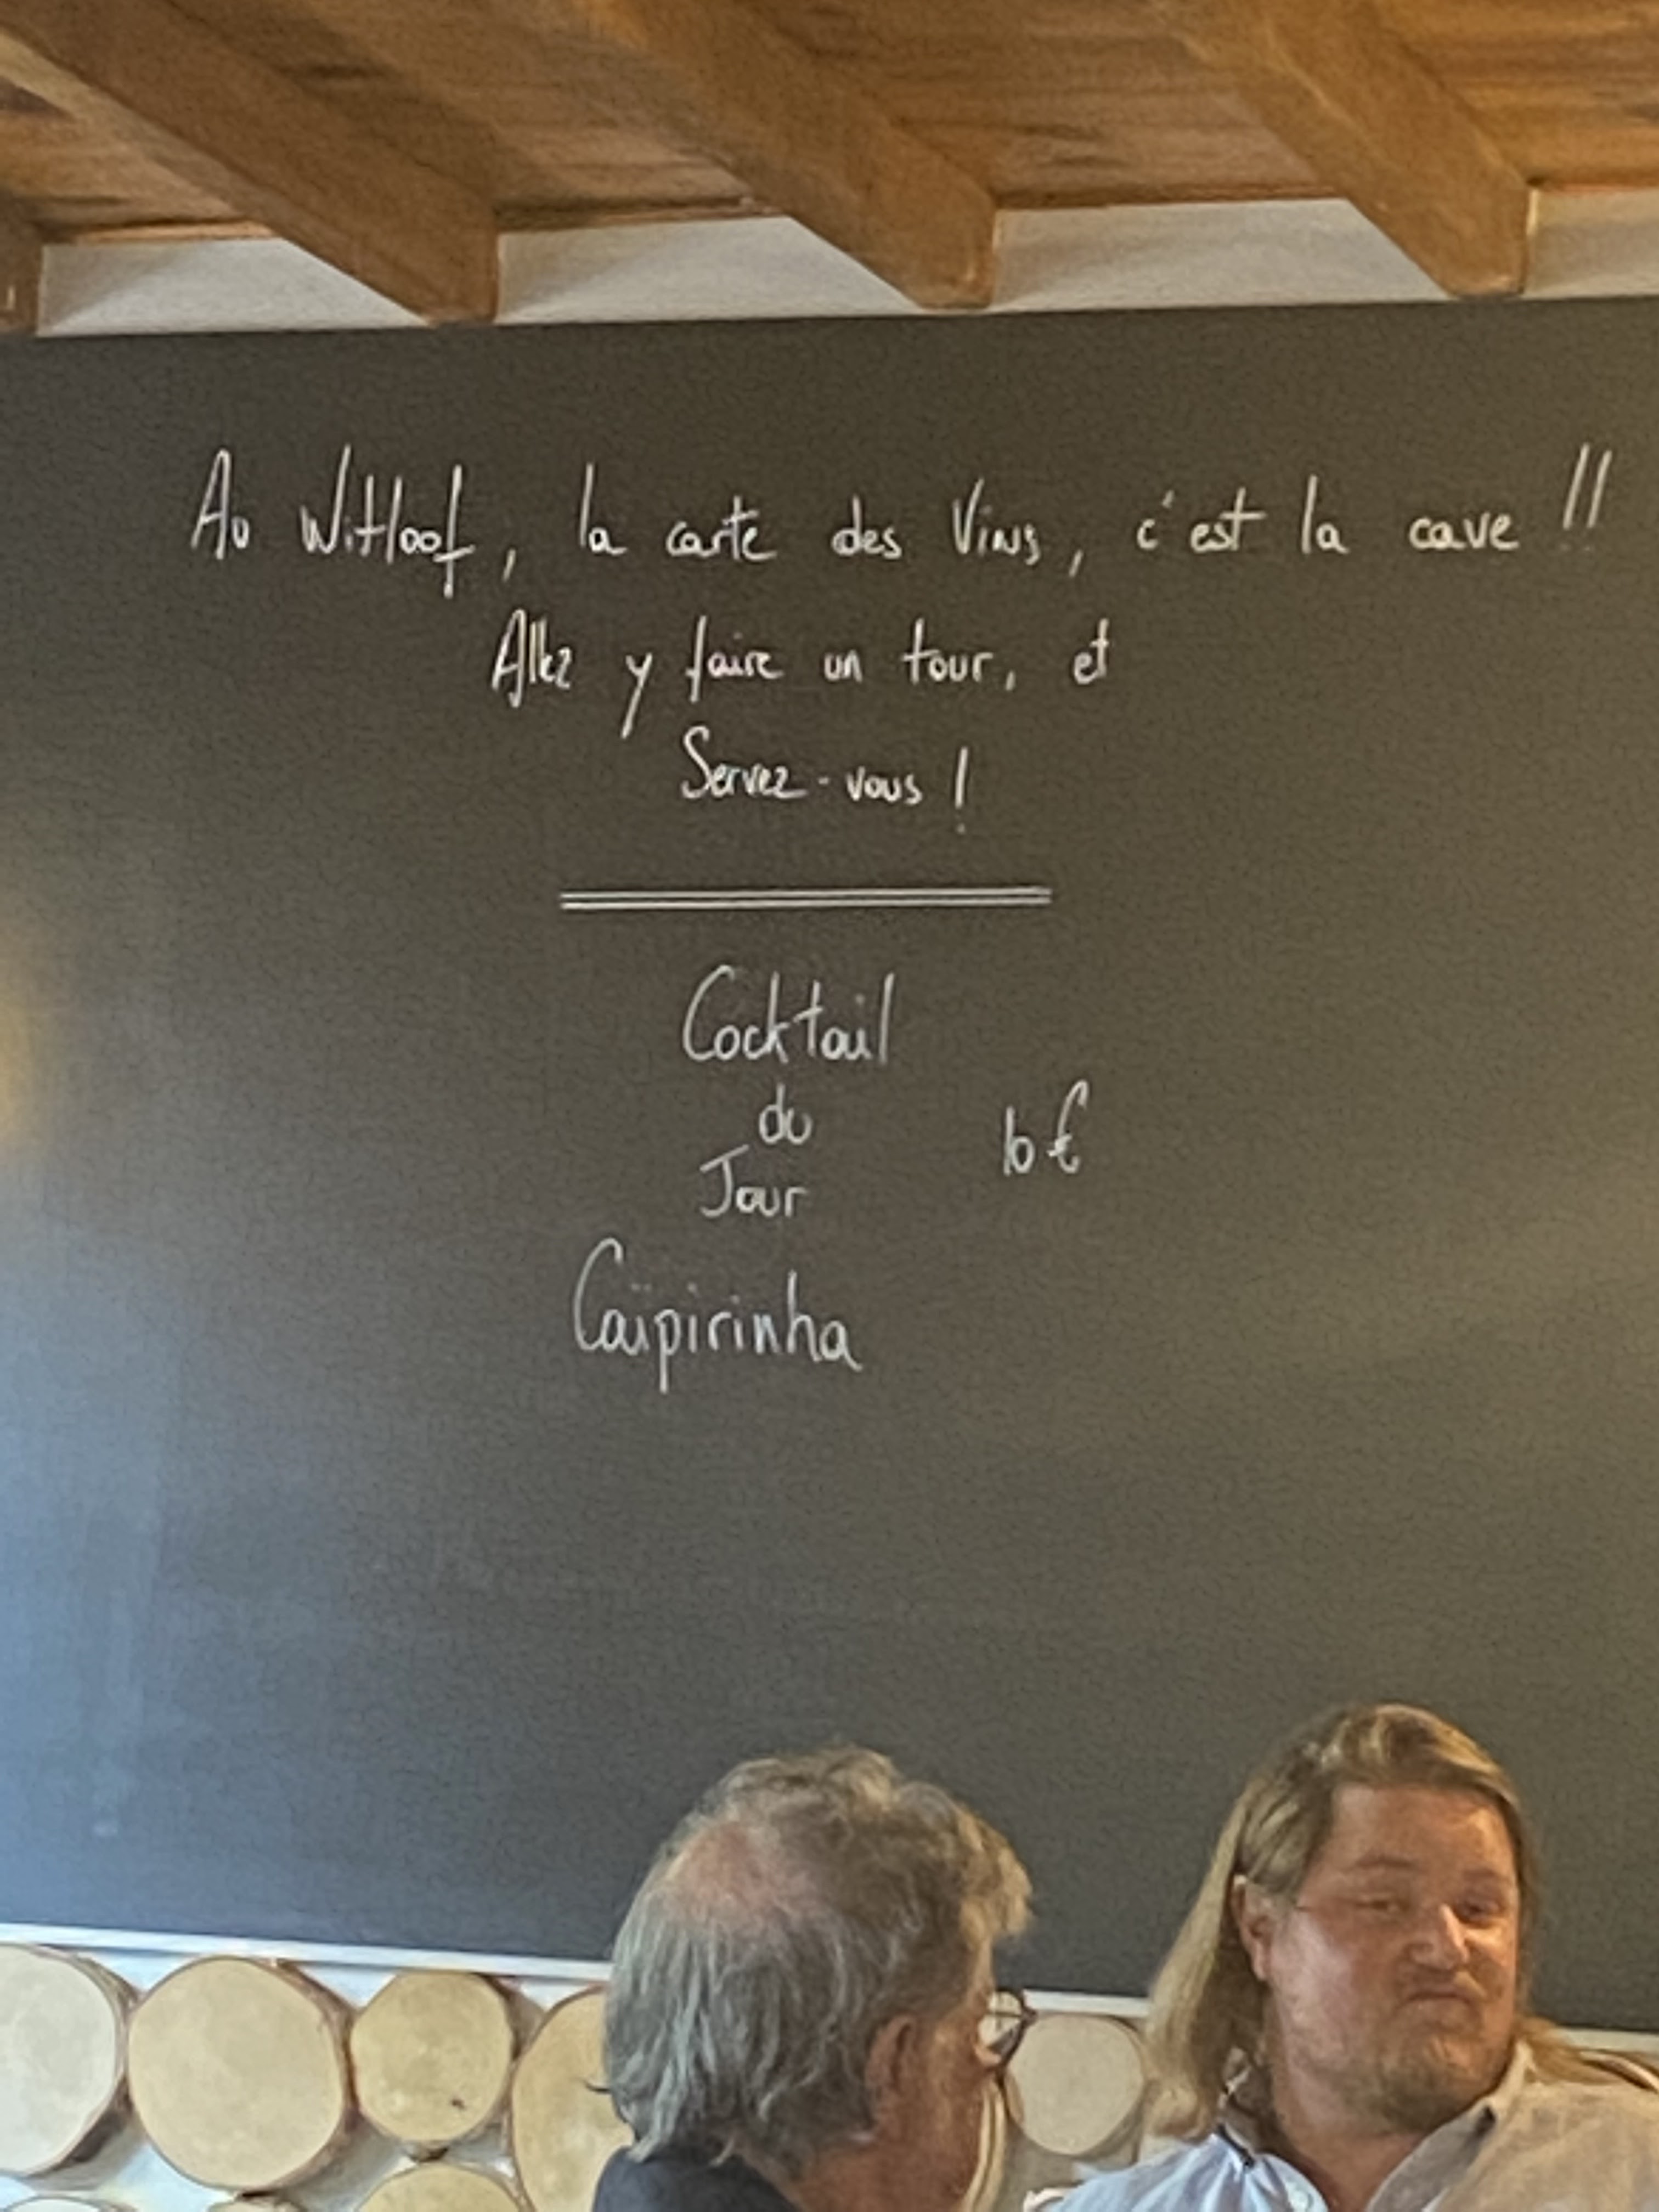 Au Witloof, la carte des Vins, c'est la cave !!
Allez y faire un tour, et
Servez-vous !
Cocktail
du
10€
Jour
Caïpirinha